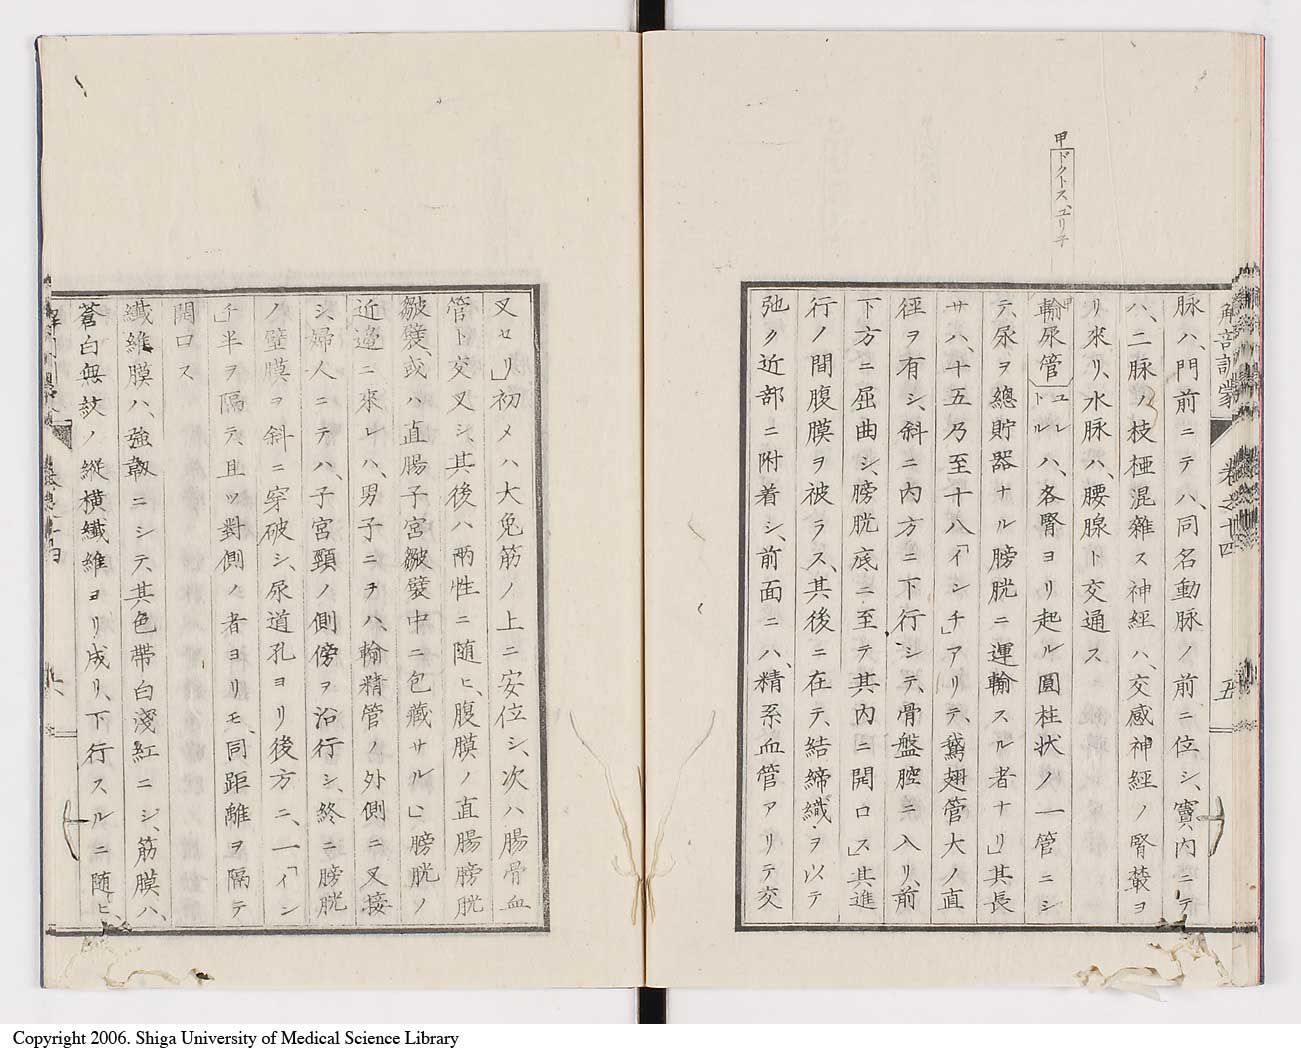 甲ドクトス、ユリ子
解剖訓蒙 卷之十四 五
脉ハ、門前ニテハ、同名動脉ノ前ニ位シ、竇內ニテ
ハ、二脉ノ枝椏混雜ス神經ハ、交感神經ノ腎叢ヨ
リ來リ、水脉ハ、腰腺ト交通ス
甲輸尿管ユレトルハ、各腎ヨリ起ル圓柱状ノ一管ニシ
テ、尿ヲ總貯器ナル膀胱ニ運輸スル者ナリ」其長
サハ、十五乃至十八「インチ」アリテ、鵞翅管大ノ直
徑ヲ有シ、斜ニ內方ニ下行シテ、骨盤腔ニ入リ、前
下方ニ屈曲シ、膀胱底ニ至テ其內ニ開口ス」其進
行ノ間腹膜ヲ被ラス、其後ニ在テ、結締織ヲ以テ
弛ク近部ニ附着シ、前面ニハ、精系血管アリテ交
叉セリ」初メハ大免筋ノ上ニ安位シ、次ハ腸骨血
管ト交叉シ、其後ハ兩性ニ随ヒ、腹膜ノ直腸膀胱
皺襞、或ハ直腸子宮皺襞中ニ包藏サル」膀胱ノ
近邉ニ來レハ、男子ニヲハ、輸精管ノ外側ニ叉接
シ、婦人ニテハ、子宮頸ノ側傍ヲ沿行シ、終ニ膀胱
ノ壁膜ヲ斜ニ穿破シ、尿道孔ヨリ後方ニ、一「イン
チ」半ヲ隔テ、且ツ對側ノ者ヨリモ、同距離ヲ隔テ
開口ス
纎維膜ハ、強韌ニシテ、其色帶白淺紅ニシ、筋膜ハ、
蒼白無紋ノ縱横纎維ヨリ成リ、下行スルニ随ヒ、
Copyright 2006. Shiga University of Medical Science Library